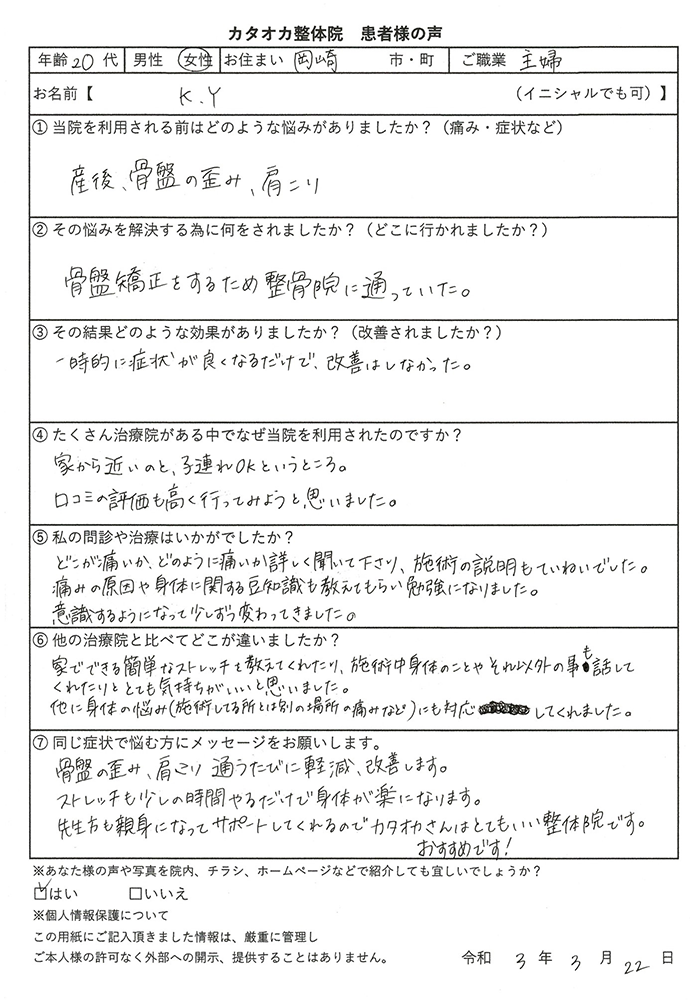 カタオカ整体院 患者様の声
年齢 20 代 男性 女性 お住まい 岡崎 市・町 ご職業 主婦
お名前【 K.Y (イニシャルでも可)】
① 当院を利用される前はどのような悩みがありましたか？（痛み・症状など）
産後、骨盤の歪み、肩こり
② その悩みを解決する為に何をされましたか？（どこに行かれましたか？）
骨盤矯正をするため整骨院に通っていた。
③ その結果どのような効果がありましたか？（改善されましたか？）
一時的に症状が良くなるだけで、改善はしなかった。
④ たくさん治療院がある中でなぜ当院を利用されたのですか？
家から近いのと、子連れOKというところ。
口コミの評価も高く行ってみようと思いました。
⑤ 私の問診や治療はいかがでしたか？
どこが痛いか、どのように痛いか詳しく聞いて下さり、施術の説明もていねいでした。
痛みの原因や身体に関する豆知識も教えてもらい勉強になりました。
意識するようになって少しずつ変わってきました。
⑥ 他の治療院と比べてどこが違いましたか？
家でできる簡単なストレッチを教えてくれたり、施術中身体のことやそれ以外の事も話して
くれたりととても気持ちがいいと思いました。
他に身体の悩み(施術してる所とは別の場所の痛みなど)にも対応してくれました。
⑦ 同じ症状で悩む方にメッセージをお願いします。
骨盤の歪み、肩こり 通うたびに軽減、改善します。
ストレッチも少しの時間やるだけで身体が楽になります。
先生方も親身になってサポートしてくれるのでカタオカさんはとてもいい整体院です。
おすすめです！
※あなた様の声や写真を院内、チラシ、ホームページなどで紹介しても宜しいでしょうか？
☑はい □いいえ
※個人情報保護について
この用紙にご記入頂きました情報は、厳重に管理し
ご本人様の許可なく外部への開示、提供することはありません。 令和 3 年 3 月 22 日